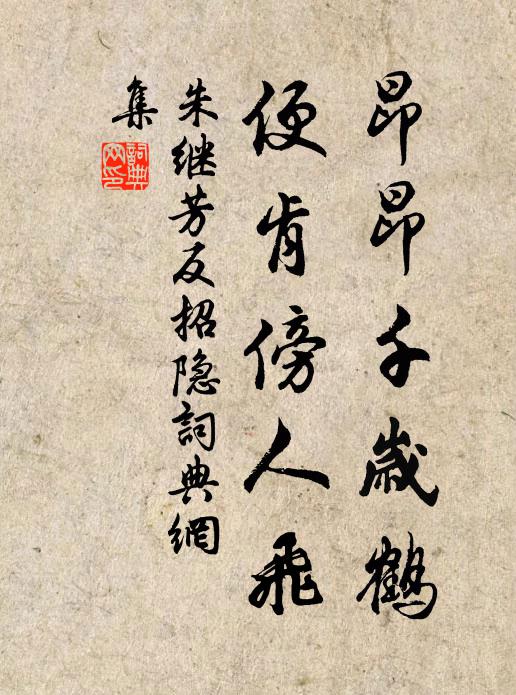 昂昂千歲鶴
便肯傍人飛
朱继芳反招隐詞典網
集
詞典網印